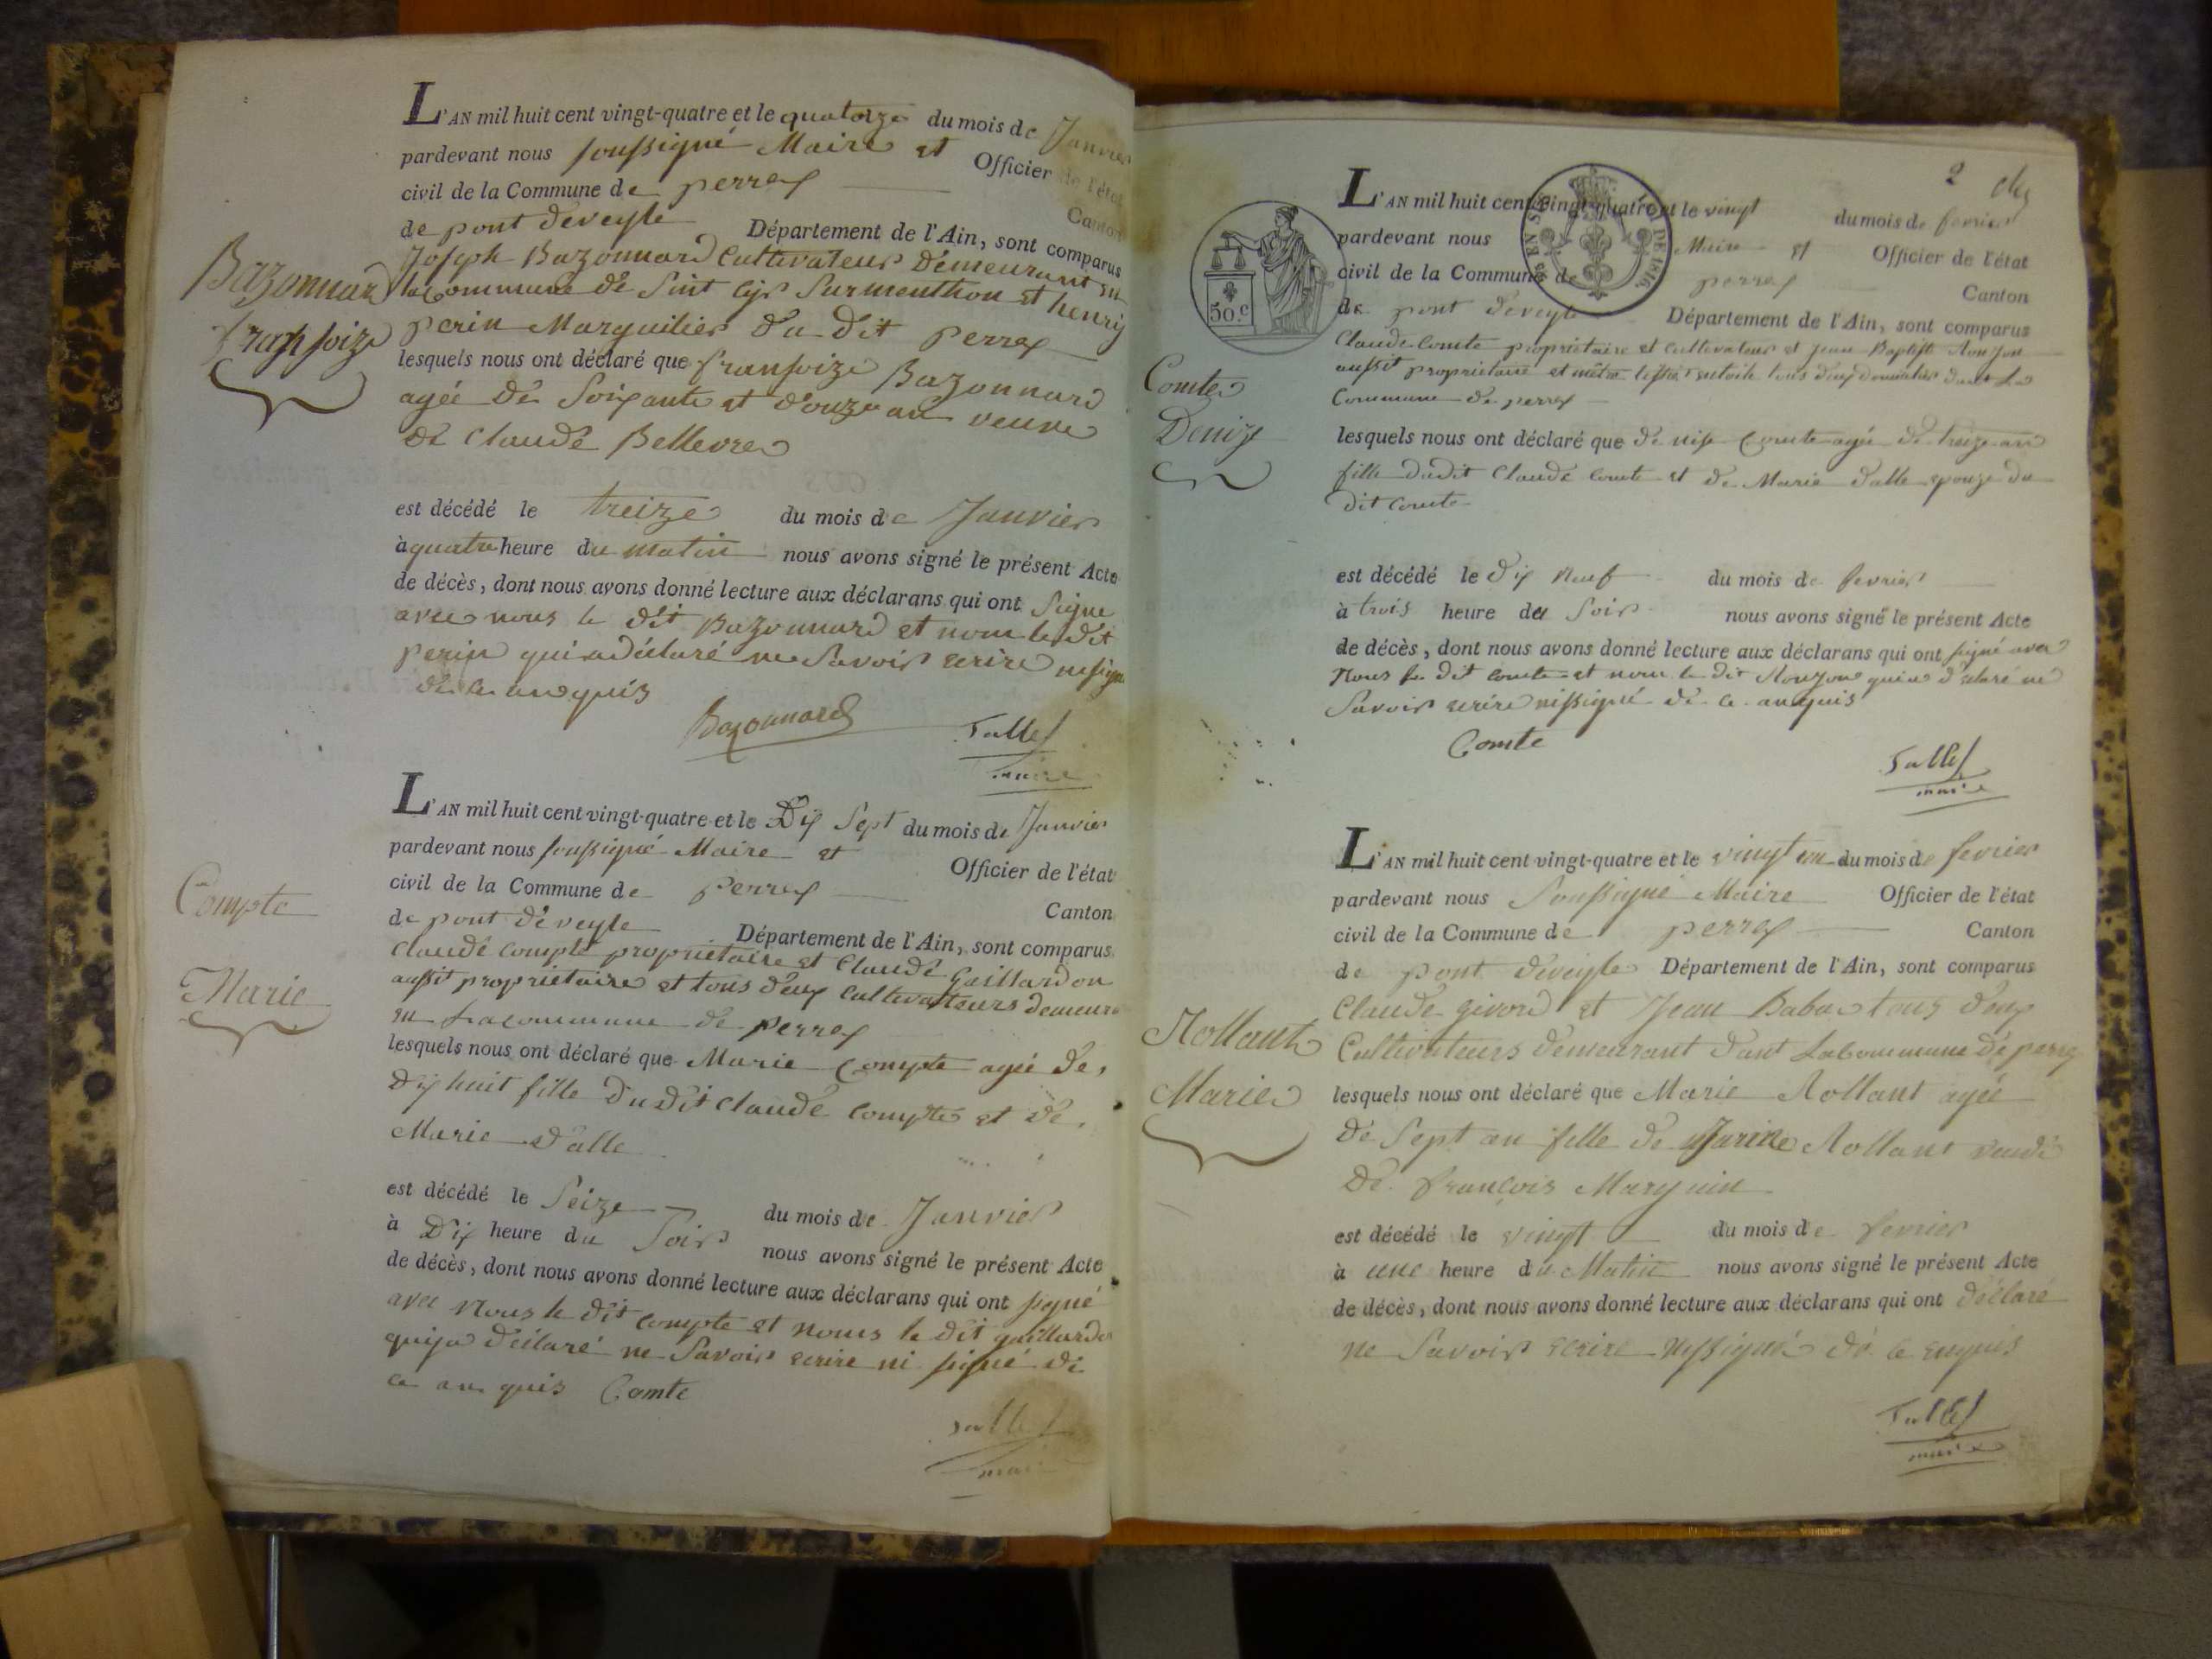 Bazonnard
fransoize
L'AN mil huit cent vingt-quatre et le quatorze du mois de Janvier
pardevant nous soussigné Maire et Officier de l'état
civil de la Commune de perrex Canton
de pont deveyle Département de l'Ain, sont comparus
Joseph Bazonnard Cultivateur Demeurant en
la commune de Sint Cyr Surmenthon et henry
perin Marguilier du dit perrex
lesquels nous ont déclaré que fransoize Bazonnard
agée de Soixante et d'ouze an veuve
de Claude Bellevre
est décédé le treize du mois de Janvier
à quatre heure du matin nous avons signé le présent Acte
de décès, dont nous avons donné lecture aux déclarans qui ont Signe
avec nous le dit Bazonnard et nom le dit
perin qui a déclaré ne Savoir ecrire
de ce anquis
Bazonnard
Sallet
maire
Compte
Marie
L'AN mil huit cent vingt-quatre et le Dix Sept du mois de Janvier
pardevant nous soussigné Maire et Officier de l'état
civil de la Commune de perrex Canton
de pont deveyle Département de l'Ain, sont comparus
Claude Compte propriétaire et Claude Gaillardon
aussit propriétaire et tous deux Cultivatteurs demeura
en La commune de perrex
lesquels nous ont déclaré que Marie Compte agée de
Dix huit fille Du Dit Claude Compte et de
Marie Dalle
est décédé le Seize du mois de Janvier
à Dix heure du Soir nous avons signé le présent Acte
de décès, dont nous avons donné lecture aux déclarans qui ont signé
avec Nous le dit Compte et nous le dit gaillardon
qui ja déclaré ne Savoir ecrire ni signé de
ce an quis Comte
Sallet
maire
2
LOI DE 1816
50.c
Comte
Denize
L'AN mil huit cent vingt-quatre et le vingt du mois de fevrier
pardevant nous Maire et Officier de l'état
civil de la Commune de perrex Canton
de pont deveyle Département de l'Ain, sont comparus
Claude Comte propriétaire et cultivateur et Jean Baptiste
aussit propriétaire et tous deux dant La
Commune de perrex
lesquels nous ont déclaré que denise Comte agée de treize an
fille dudit Claude Comte et de Marie Dalle epouze du
dit Comte
est décédé le dix neuf du mois de fevrier
à trois heure du Soir nous avons signé le présent Acte
de décès, dont nous avons donné lecture aux déclarans qui ont signé avec
Nous le dit Comte et nom le dit qui a déclaré ne
Savoir ecrire nissigné de ce anquis
Comte
Sallet
maire
Rollant
Marie
L'AN mil huit cent vingt-quatre et le vingt un du mois de fevrier
pardevant nous Soussigné Maire Officier de l'état
civil de la Commune de perrex Canton
de pont deveyle Département de l'Ain, sont comparus
Claude givord et Jean Babu tous deux
Cultivateurs demeurant dant La commune de perrex
lesquels nous ont déclaré que Marie Rollant agée
de Sept an fille de Rollant
De françois Marguin
est décédé le vingt du mois de fevrier
à une heure du Matin nous avons signé le présent Acte
de décès, dont nous avons donné lecture aux déclarans qui ont déclaré
ne Savoir ecrire nissigné de ce enquis
Sallet
maire